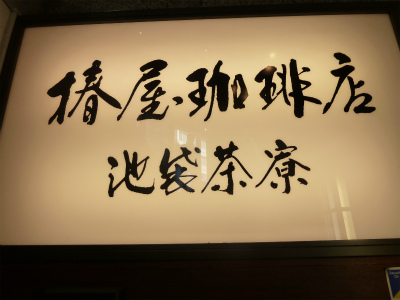 椿屋珈琲店
池袋茶寮